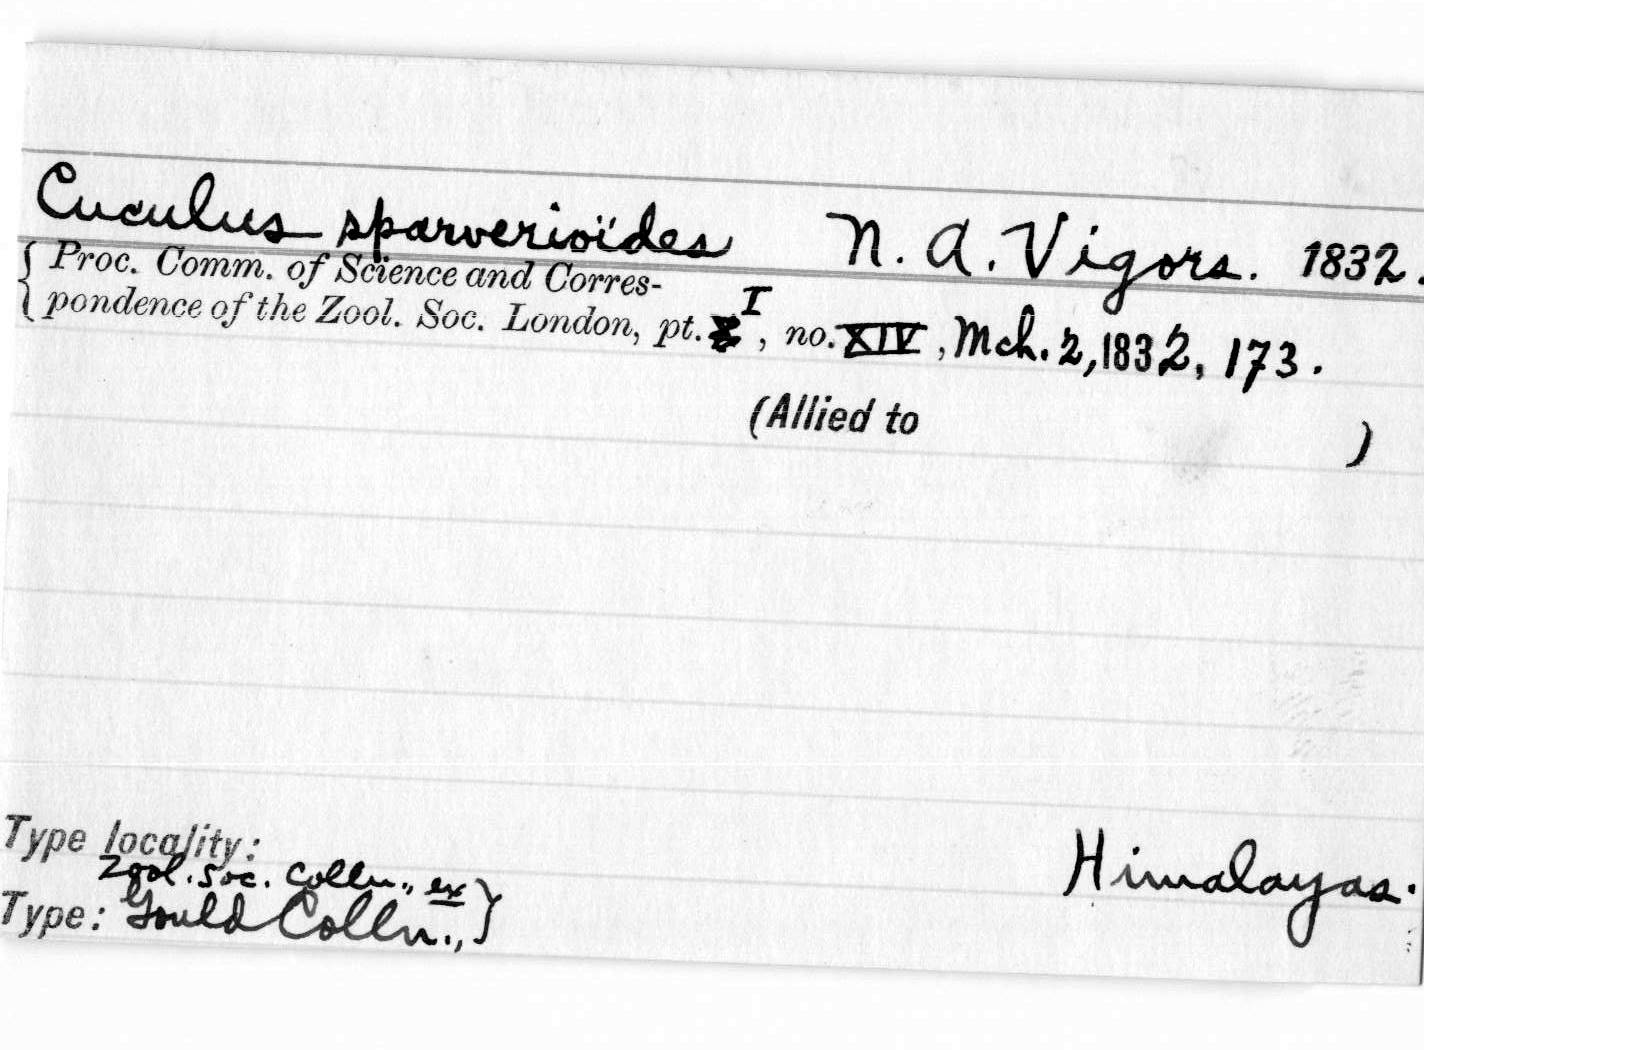 Cuculus sparverioïdes N. A. Vigors. 1832.
{ Proc. Comm. of Science and Corres-
pondence of the Zool. Soc. London, pt. I, no. XIV, Mch. 2, 1832, 173.
(Allied to )
Type locality: Himalayas.
Zool. Soc. Colln., ex }
Type: Gould Colln., }